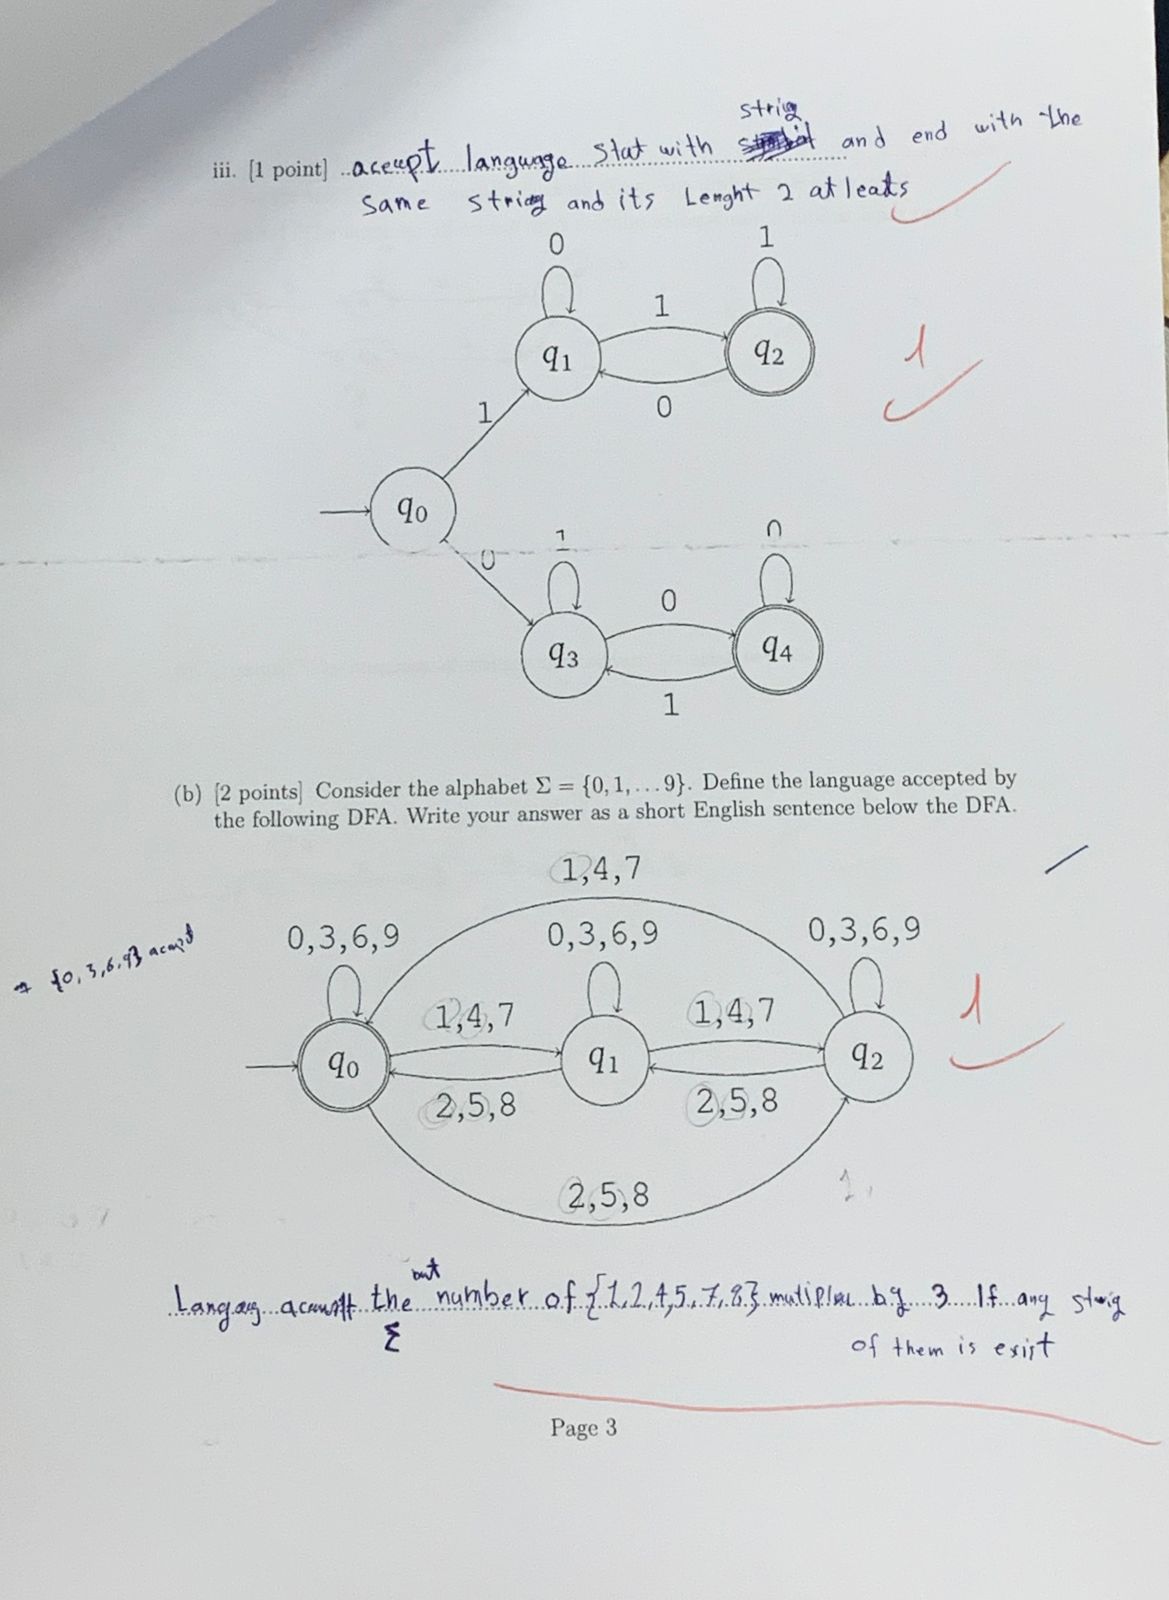 strig
iii. [1 point] aceept language stat with and end with the
same string and its Lenght 2 at leats
0
1
1
q1
q2
1
0
1
q0
0
1
0
0
q3
q4
1
(b) [2 points] Consider the alphabet Σ = {0, 1, ... 9}. Define the language accepted by
the following DFA. Write your answer as a short English sentence below the DFA.
1,4,7
0,3,6,9
0,3,6,9
0,3,6,9
→ {0,3,6,9}
1,4,7
1,4,7
1
q0
q1
q2
2,5,8
2,5,8
2,5,8
1,
but
the number of {1,2,4,5,7,8} by 3 If any
Σ
of them is exist
Page 3